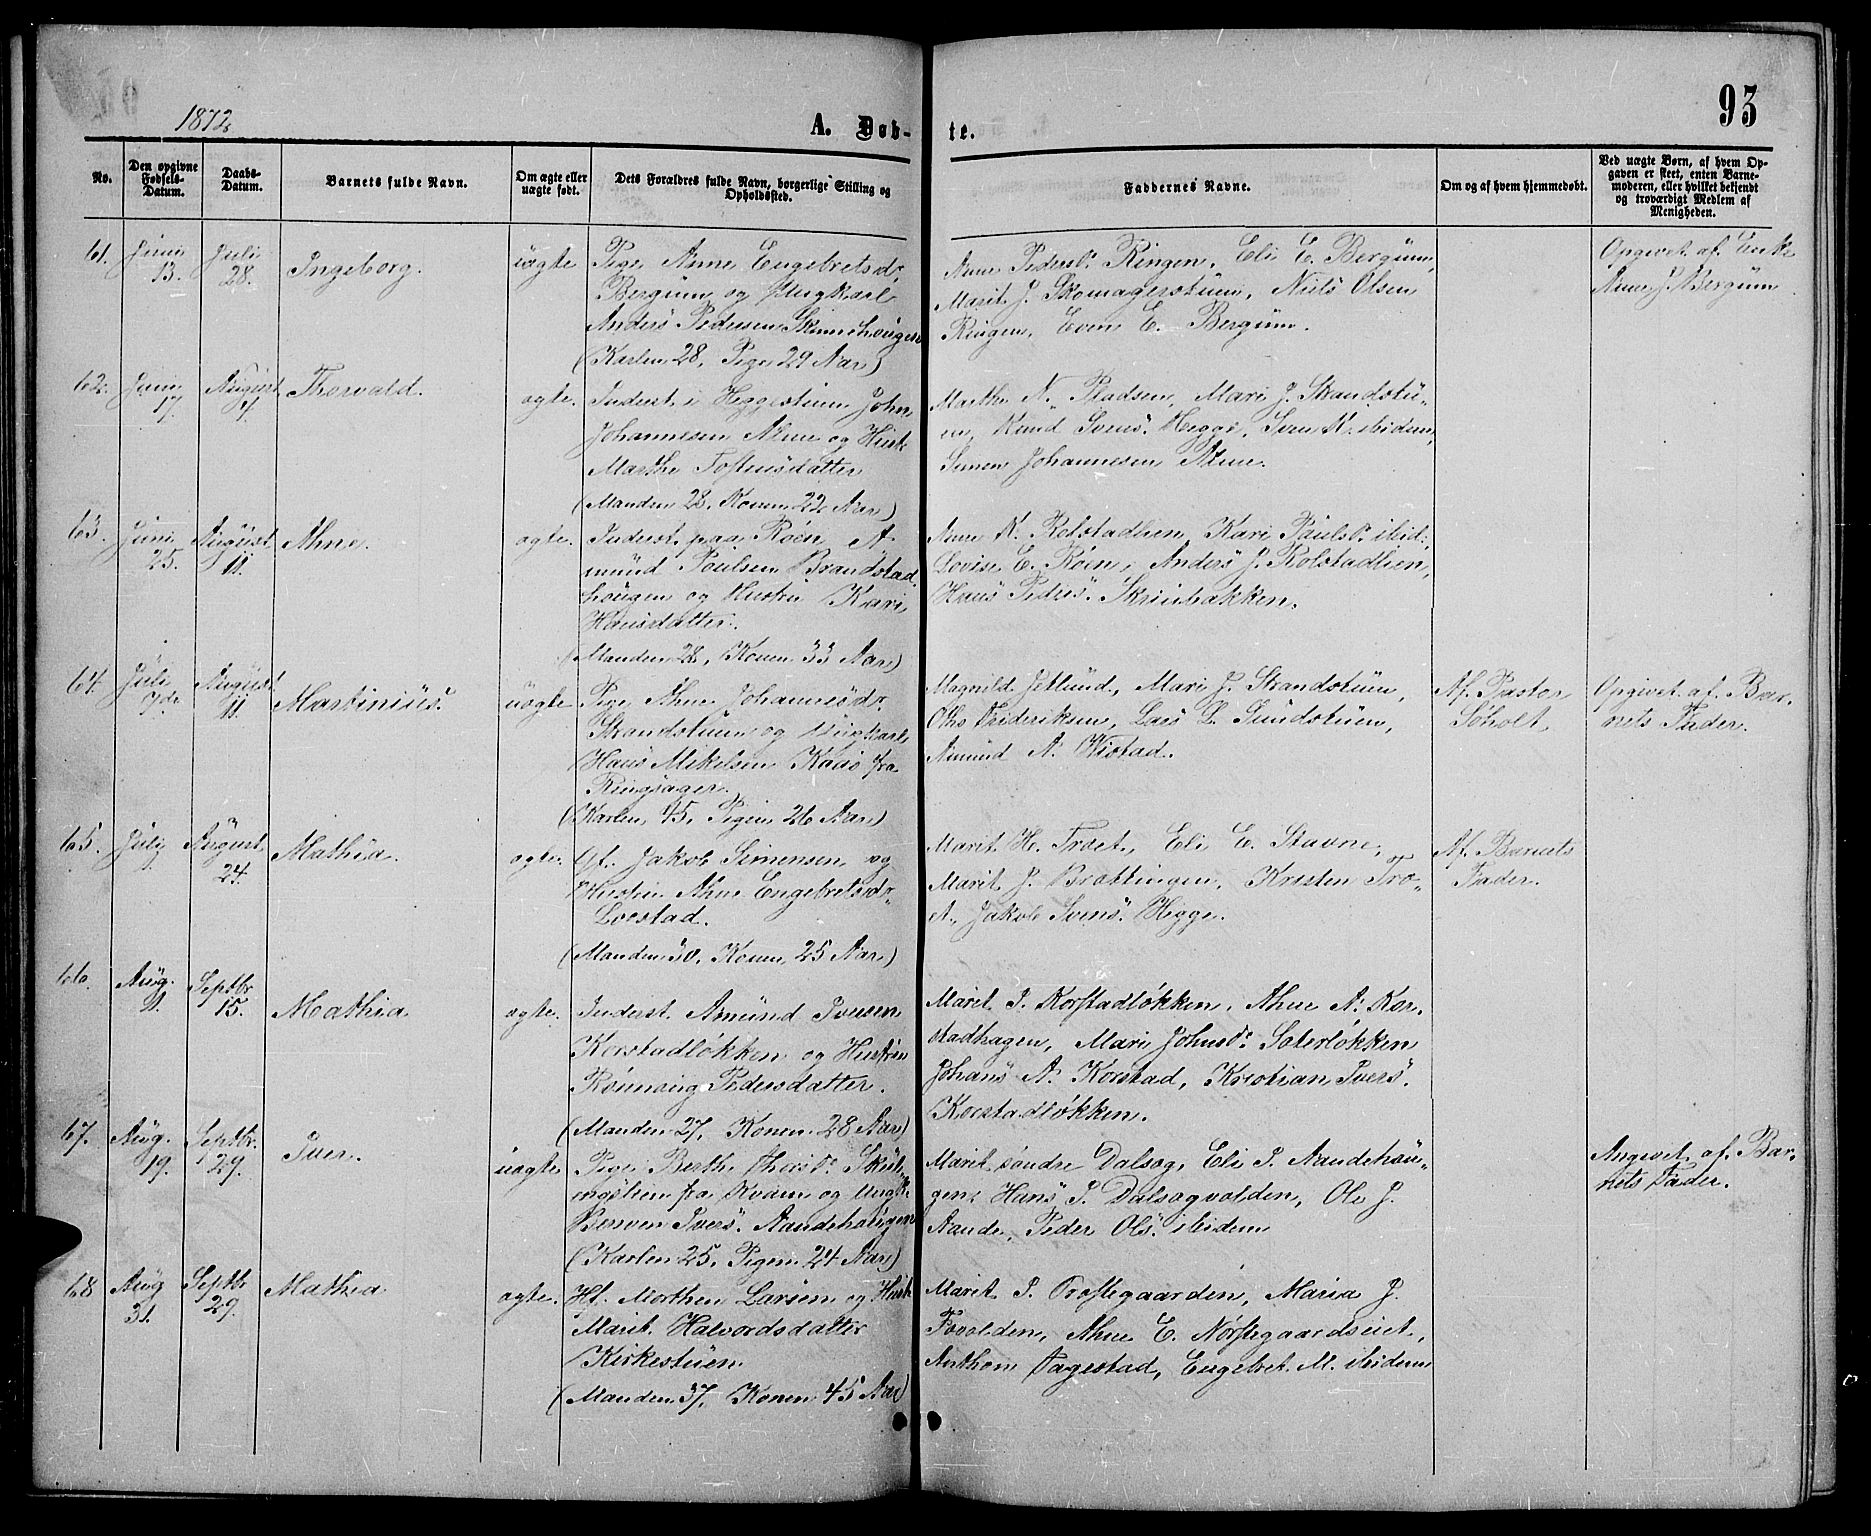 1872.
A. Døb-
te.
93
No.
Den opgivne Fødsels-Datum.
Daabs-Datum.
Barnets fulde Navn.
Om ægte eller uægte født.
Dets Forældres fulde Navn, borgerlige Stilling og Opholdssted.
Faddernes Navne.
Om og af hvem hjemmedøbt.
Ved uægte Børn, af hvem Op-
gaven er skeet, enten Barne-
moderen, eller hvilket bekjendt
og troværdigt Medlem af
Menigheden.
61. Juni 13. Juli 28. Ingeborg. uægte
Pige Anne Engebretsdr
Bergum og Ungkarl
Anders Pedersen Skinnehougen
(Karlen 28, Pige 29 Aar)
Anne Pedersdr Ringen, Eli E. Bergum,
Marit J. Skomagerstuen, Niels Olsen
Ringen, Even E. Bergum.
Opgivet af Enke
Anne J. Bergum
62. Juni 17. August 4. Thorvald. ægte.
Inderst i Heggestuen John
Johannesen Alme og Hust.
Marthe Tostensdatter
(Manden 28, Konen 22 Aar)
Marthe N. Pladsen, Mari J. Strandstu-
en, Knud Svens. Hegge, Sven K. ibidem,
Simen Johannesen Alme.
63. Juni 25. August 11. Ahne. ægte.
Inderst paa Røen A-
mund Poulsen Brandstad-
hougen og Hustru Kari
Hansdatter.
(Manden 28, Konen 33 Aar)
Anne K. Rolstadlien, Kari Paulsdr ibid.,
Lovise E. Røen, Anders J. Rolstadlien,
Hans Peders. Skrinbakken.
64. Juli 7de August 11. Martinius. uægte
Pige Ahne Johannesdr
Strandstuen og Ungkarl
Hans Mikelsen Kaas fra
Ringsager.
(Karlen 45, Pigen 26 Aar)
Magnild Jetlund, Mari J. Strandstuen,
Oho Frideriksen, Lars L. Sundstuen,
Amund A. Kistad.
Af Pastor
Søholt.
Opgivet af Bar-
nets Fader.
65. Juli August 24. Mathia. ægte.
Gf. Jakob Simensen og
Hustru Ahne Engebretsdr
Lovstad.
(Manden 30, Konen 25 Aar)
Marit H. Troet, Eli E. Stavne,
Marit J. Brattingen, Kristen Tro-
et, Jakob Svens. Hegge.
Af Barnets
Fader.
66. Aug. Septbr 15. Mathia ægte.
Inderst Amund Iversen
Korstadløkken og Hustru
Rønnaug Pedersdatter.
(Manden 27, Konen 28 Aar)
Marit I. Korstadløkken, Ahne A. Kor-
stadhagen, Mari Johnsdr Soterløkken
Johans A. Korstad, Kristian Ivers.
Korstadløkken.
67. Aug. 19. Septbr. 29. Iver. uægte
Pige Berthe Thosdr
fra Kvam og Ungk.
Ivers. Aandehougen
(Karlen 25, Pigen 24 Aar)
Marit søndre Dalsog, Eli I. Aandehou-
gen, Hans P. Dalsogvolden, Ole J.
Aande, Peder Ols. ibidem
Angivet af Bar-
nets Fader.
68 Aug 31. Septbr 29. Mathia ægte.
Hf. Morthen Larsen og Hust.
Marit Halvordsdatter
Kirkestuen
(Manden 37, Konen 45 Aar)
Marit I. Prostegaarden, Maria J.
Fovolden, Ahne E. Nørstegaardseiet,
Anthon Fagestad, Engebret M. ibidem